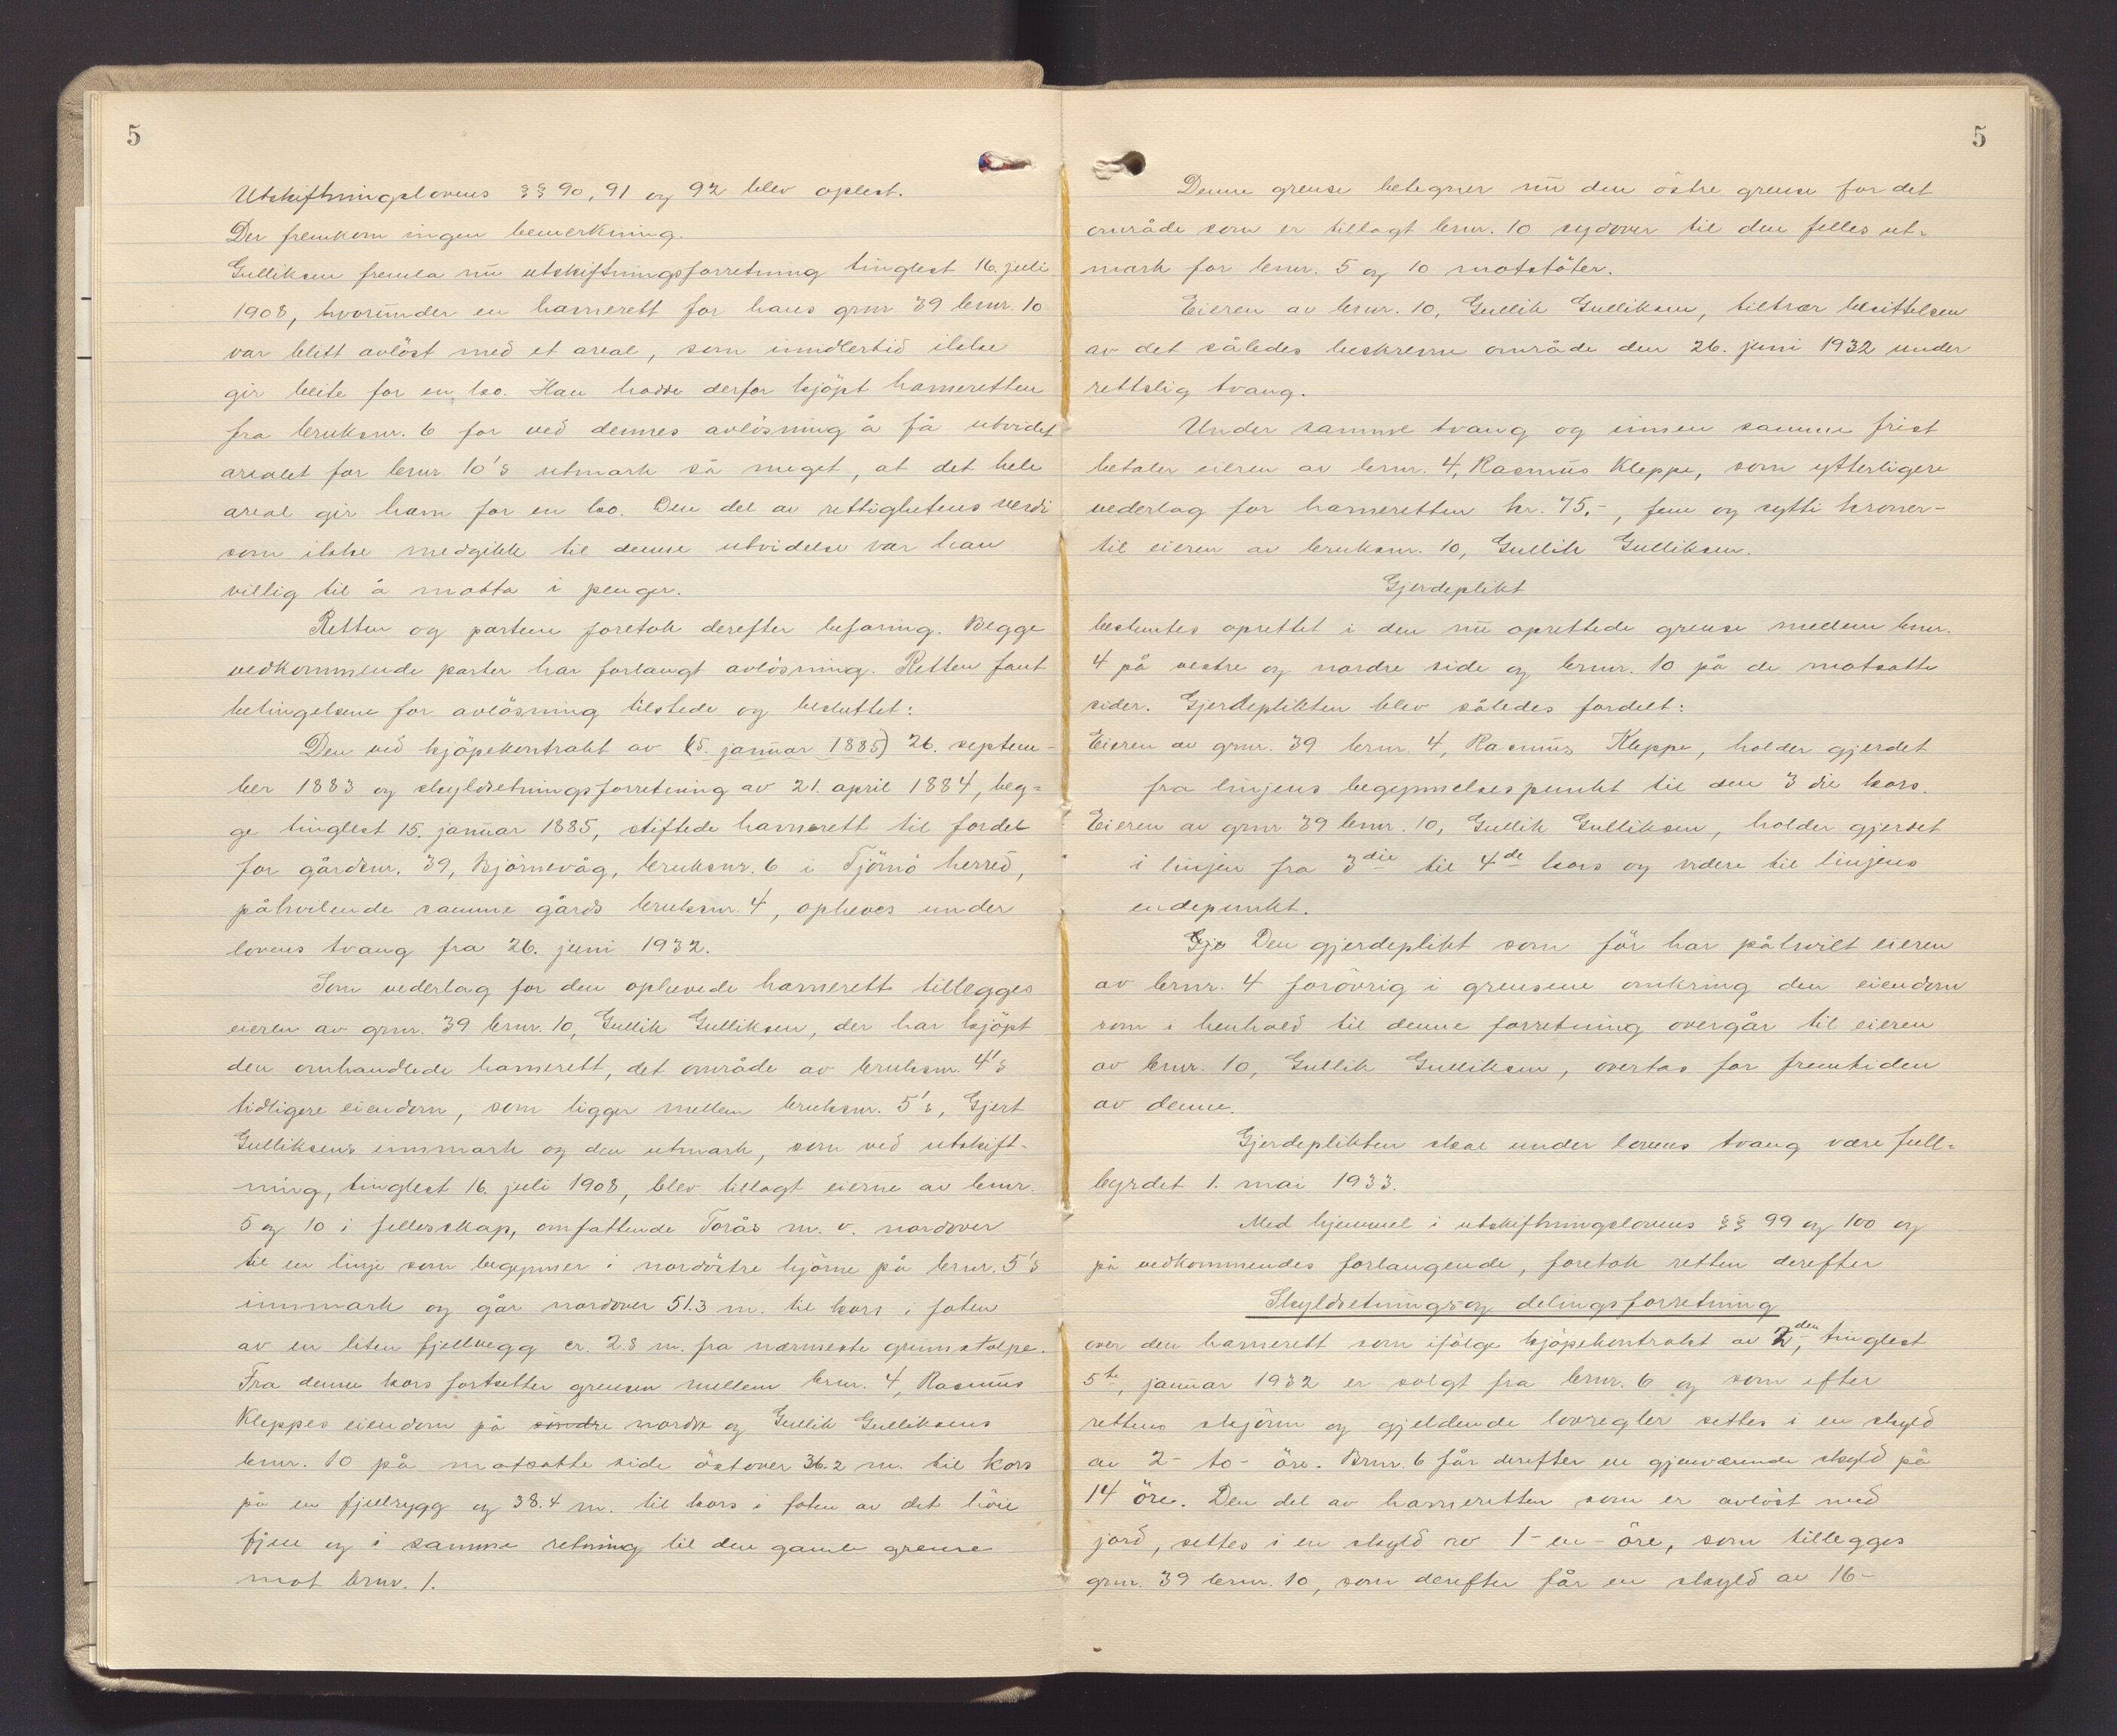 5
Utskiftningslovens §§ 90, 91 og 92 blev oplest.
Der fremkom ingen bemerkning.
Gulliksen fremla nu utskiftningsforretning tinglest 16. juli
1908, hvorunder en havnerett for hans grnr 39 brnr. 10
var blitt avlöst med et areal, som imidlertid ikke
gir beite for en ko. Han hadde derfor kjöpt havneretten
fra bruksnr. 6 for ved dennes avlösning å få utvidet
arealet for brnr 10's utmark så meget, at det hele
areal gir havn for en ko. Den del av rettighetens verdi
som ikke medgikk til denne utvidelse var han
villig til å motta i penger.
Retten og partene foretok derefter befaring. Begge
vedkommende parter har forlangt avlösning. Retten fant
betingelsene for avlösning tilstede og besluttet:
Den ved kjöpekontrakt av (5. januar 1885) 26. septem-
ber 1883 og skyldsetningsforretning av 21. april 1884, beg-
ge tinglest 15. januar 1885, stiftede havnerett til fordel
for gårdsnr. 39, Björnevåg, bruksnr. 6 i Tjömö herred,
påhvilende samme gårds bruksnr. 4, opheves under
lovens tvang fra 26. juni 1932.
Som vederlag for den ophevede havnerett tillegges
eieren av grnr. 39 brnr. 10, Gullik Gulliksen, der har kjöpt
den omhandlede havnerett, det område av bruksnr. 4's
tidligere eiendom, som ligger mellem bruksnr. 5's, Gjert
Gulliksens innmark og den utmark, som ved utskift-
ning, tinglest 16. juli 1908, blev tillagt eierne av brnr.
5 og 10 i fellesskap, omfattende Torås m. v. nordover
til en linje som begynner i nordöstre hjörne på brnr. 5's
innmark og går nordover 51.3 m. til kors i foten
av en liten fjellvegg cr. 2.8 m. fra nærmeste grinnstolpe.
Fra denne kors fortsetter grensen mellem brnr. 4, Rasmus
Kleppes eiendom på söndre nordre og Gullik Gulliksens
brnr. 10 på motsatte side östover 36.2 m. til kors
på en fjellrygg og 38.4 m. til kors i foten av det höie
fjell og i samme retning til den gamle grense
mot brnr. 1.
5
Denne grense betegner nu den östre grense for det
område som er tillagt brnr. 10 sydover til den felles ut-
mark for brnr. 5 og 10 motstöter.
Eieren av brnr. 10, Gullik Gulliksen, tiltrær besittelsen
av det således beskrevne område den 26. juni 1932 under
rettslig tvang.
Under samme tvang og innen samme frist
betaler eieren av brnr. 4, Rasmus Kleppe, som ytterligere
vederlag for havneretten kr. 75.-, fem og sytti kroner-
til eieren av bruksnr. 10, Gullik Gulliksen.
Gjerdeplikt
besluttes oprettet i den nu oprettede grense mellem brnr.
4 på vestre og nordre side og brnr. 10 på de motsatte
sider. Gjerdeplikten blev således fordelt:
Eieren av grnr. 39 brnr. 4, Rasmus Kleppe, holder gjerdet
fra linjens begynnelsespunkt til den 3 die kors.
Eieren av grnr 39 brnr. 10, Gullik Gulliksen, holder gjerdet
i linjen fra 3die til 4de kors og videre til linjens
endepunkt.
Gje Den gjerdeplikt som för har påhvilt eieren
av brnr. 4 forövrig i grensene omkring den eiendom
som i henhold til denne forretning overgår til eieren
av brnr. 10, Gullik Gulliksen, overtas for fremtiden
av denne.
Gjerdeplikten skal under lovens tvang være full-
byrdet 1. mai 1933.
Med hjemmel i utskiftningslovens §§ 99 og 100 og
på vedkommendes forlangende, foretok retten derefter
Skyldsetnings- og delingsforretning
over den havnerett som ifölge kjöpekontrakt av 2den, tinglest
5te, januar 1932 er solgt fra brnr. 6 og som efter
rettens skjönn og gjeldende lovregler settes i en skyld
av 2- to- öre. Brnr. 6 får derefter en gjenværende skyld på
14 öre. Den del av havneretten som er avlöst med
jord, settes i en skyld av 1- en- öre, som tillegges
grnr. 39 brnr. 10, som derefter får en skyld av 16-